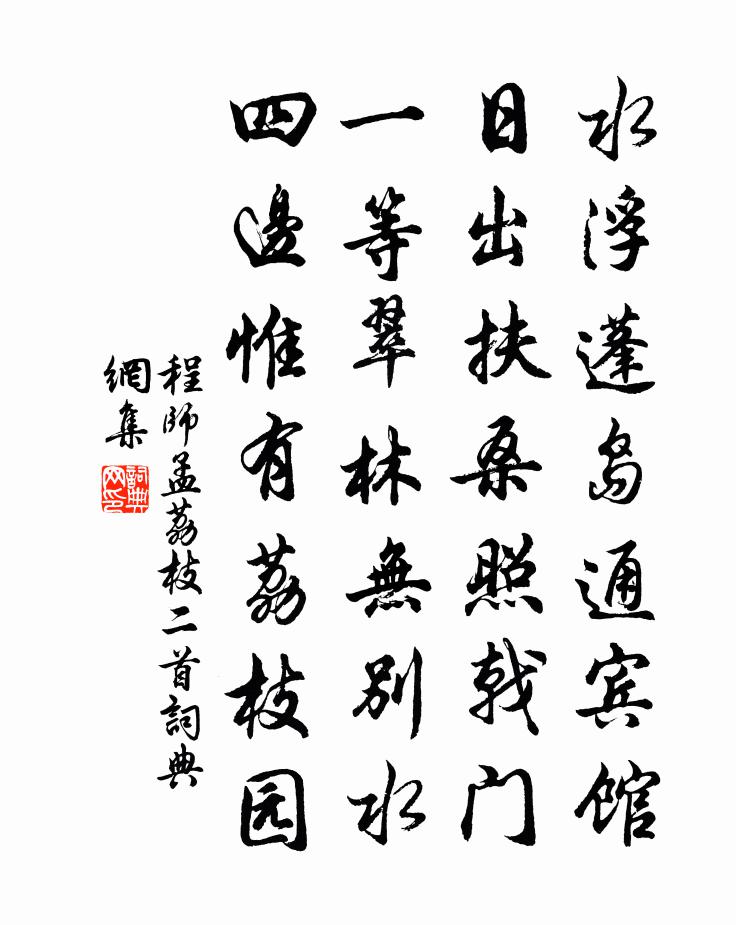 水浮蓬岛通宾馆
日出扶桑照戟门
一等翠林無别水
四邊惟有荔枝园
程師孟荔枝二首詞典
網集
詞典網印